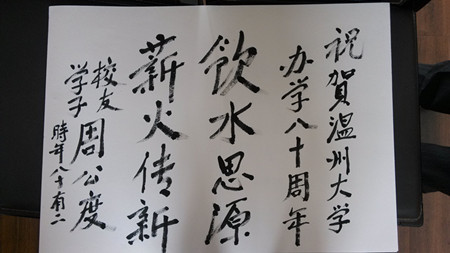 祝賀温州大学
办学八十周年
飲水思源
薪火传新
校友
学子
周公度
時年八十有二